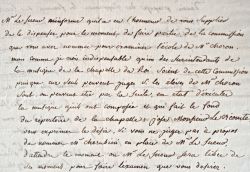 Mr Le Sueur m'informe qu'il a eu l'honneur de vous supplier
de le dispenser pour le moment de faire partie de la Commission
que vous avez nommée pour examiner l'école de Mr Choron
mon comme je vois indispensable qu'un des Surintendants de
la musique de la chapelle du Roi soit de cette Commission
puisque eux seuls peuvent juger si les élèves de Mr Choron
sont ou peuvent être par la suite, en état d'exécuter
la musique qu'ils ont composée et qui fait le fond
du répertoire de la chapelle; j'ose Monsieur le Vicomte
vous exprimer le désir, si vous ne jugez pas à propos
de nommer Mr Cherubini en place de Mr Le Sueur,
d'attendre le moment où Mr Le Sueur sera libre de
ce moment pour faire l'examen que vous désirez.